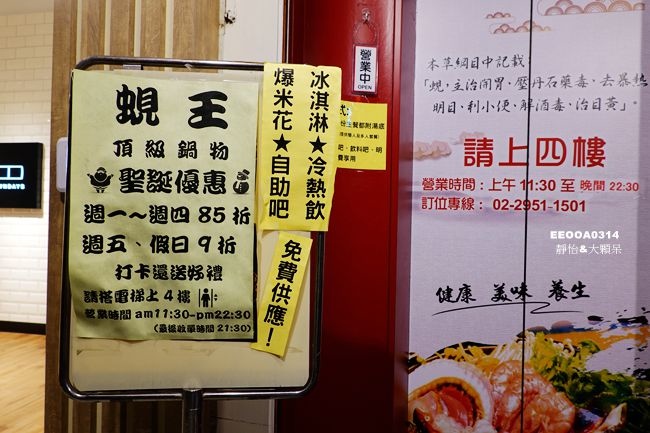 蜆王
頂級鍋物
聖誕優惠
週一～週四 85折
週五、假日9折
打卡還送好禮
請搭電梯上4樓
營業時間am11:30-pm22:30
(最後收單時間21:30)
冰淇淋★冷熱飲
爆米花★自助吧
免費供應！
營業中
OPEN
本草綱目中記載
「蜆，主治開胃、壓丹石藥毒，去暴熱
明目，利小便，解酒毒，治目黃」。
請上四樓
營業時間：上午 11:30 至 晚間 22:30
訂位專線： 02-2951-1501
EEOOA0314
靜怡&大顆呆
健康 美味 養生